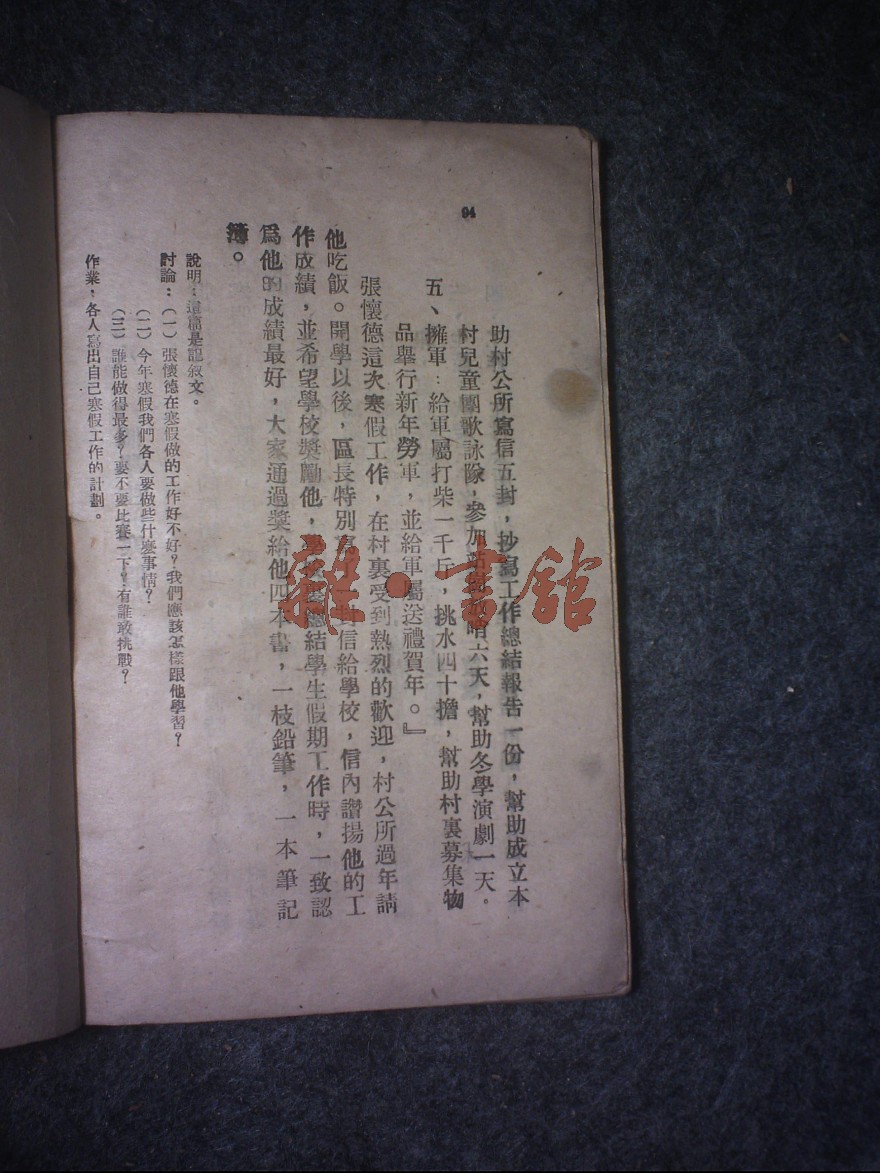 94
助村公所寫信五封，抄寫工作總結報告一份，幫助成立本
村兒童團歌詠隊，參加站崗放哨六天，幫助冬學演劇一天。
五、擁軍：給軍屬打柴一千斤，挑水四十擔，幫助村裏募集物
品舉行新年勞軍，並給軍屬送禮賀年。』
張懷德這次寒假工作，在村裏受到熱烈的歡迎，村公所過年請
他吃飯。開學以後，區長特別寫一封信給學校，信內讚揚他的工
作成績，並希望學校獎勵他，學校總結學生假期工作時，一致認
爲他的成績最好，大家通過獎給他四本書，一枝鉛筆，一本筆記
簿。
說明：這篇是記叙文。
討論：（一）張懷德在寒假做的工作好不好？我們應該怎樣跟他學習？
（二）今年寒假我們各人要做些什麽事情？
（三）誰能做得最多？要不要比賽一下？有誰敢挑戰？
作業：各人寫出自己寒假工作的計劃。
雜·書館